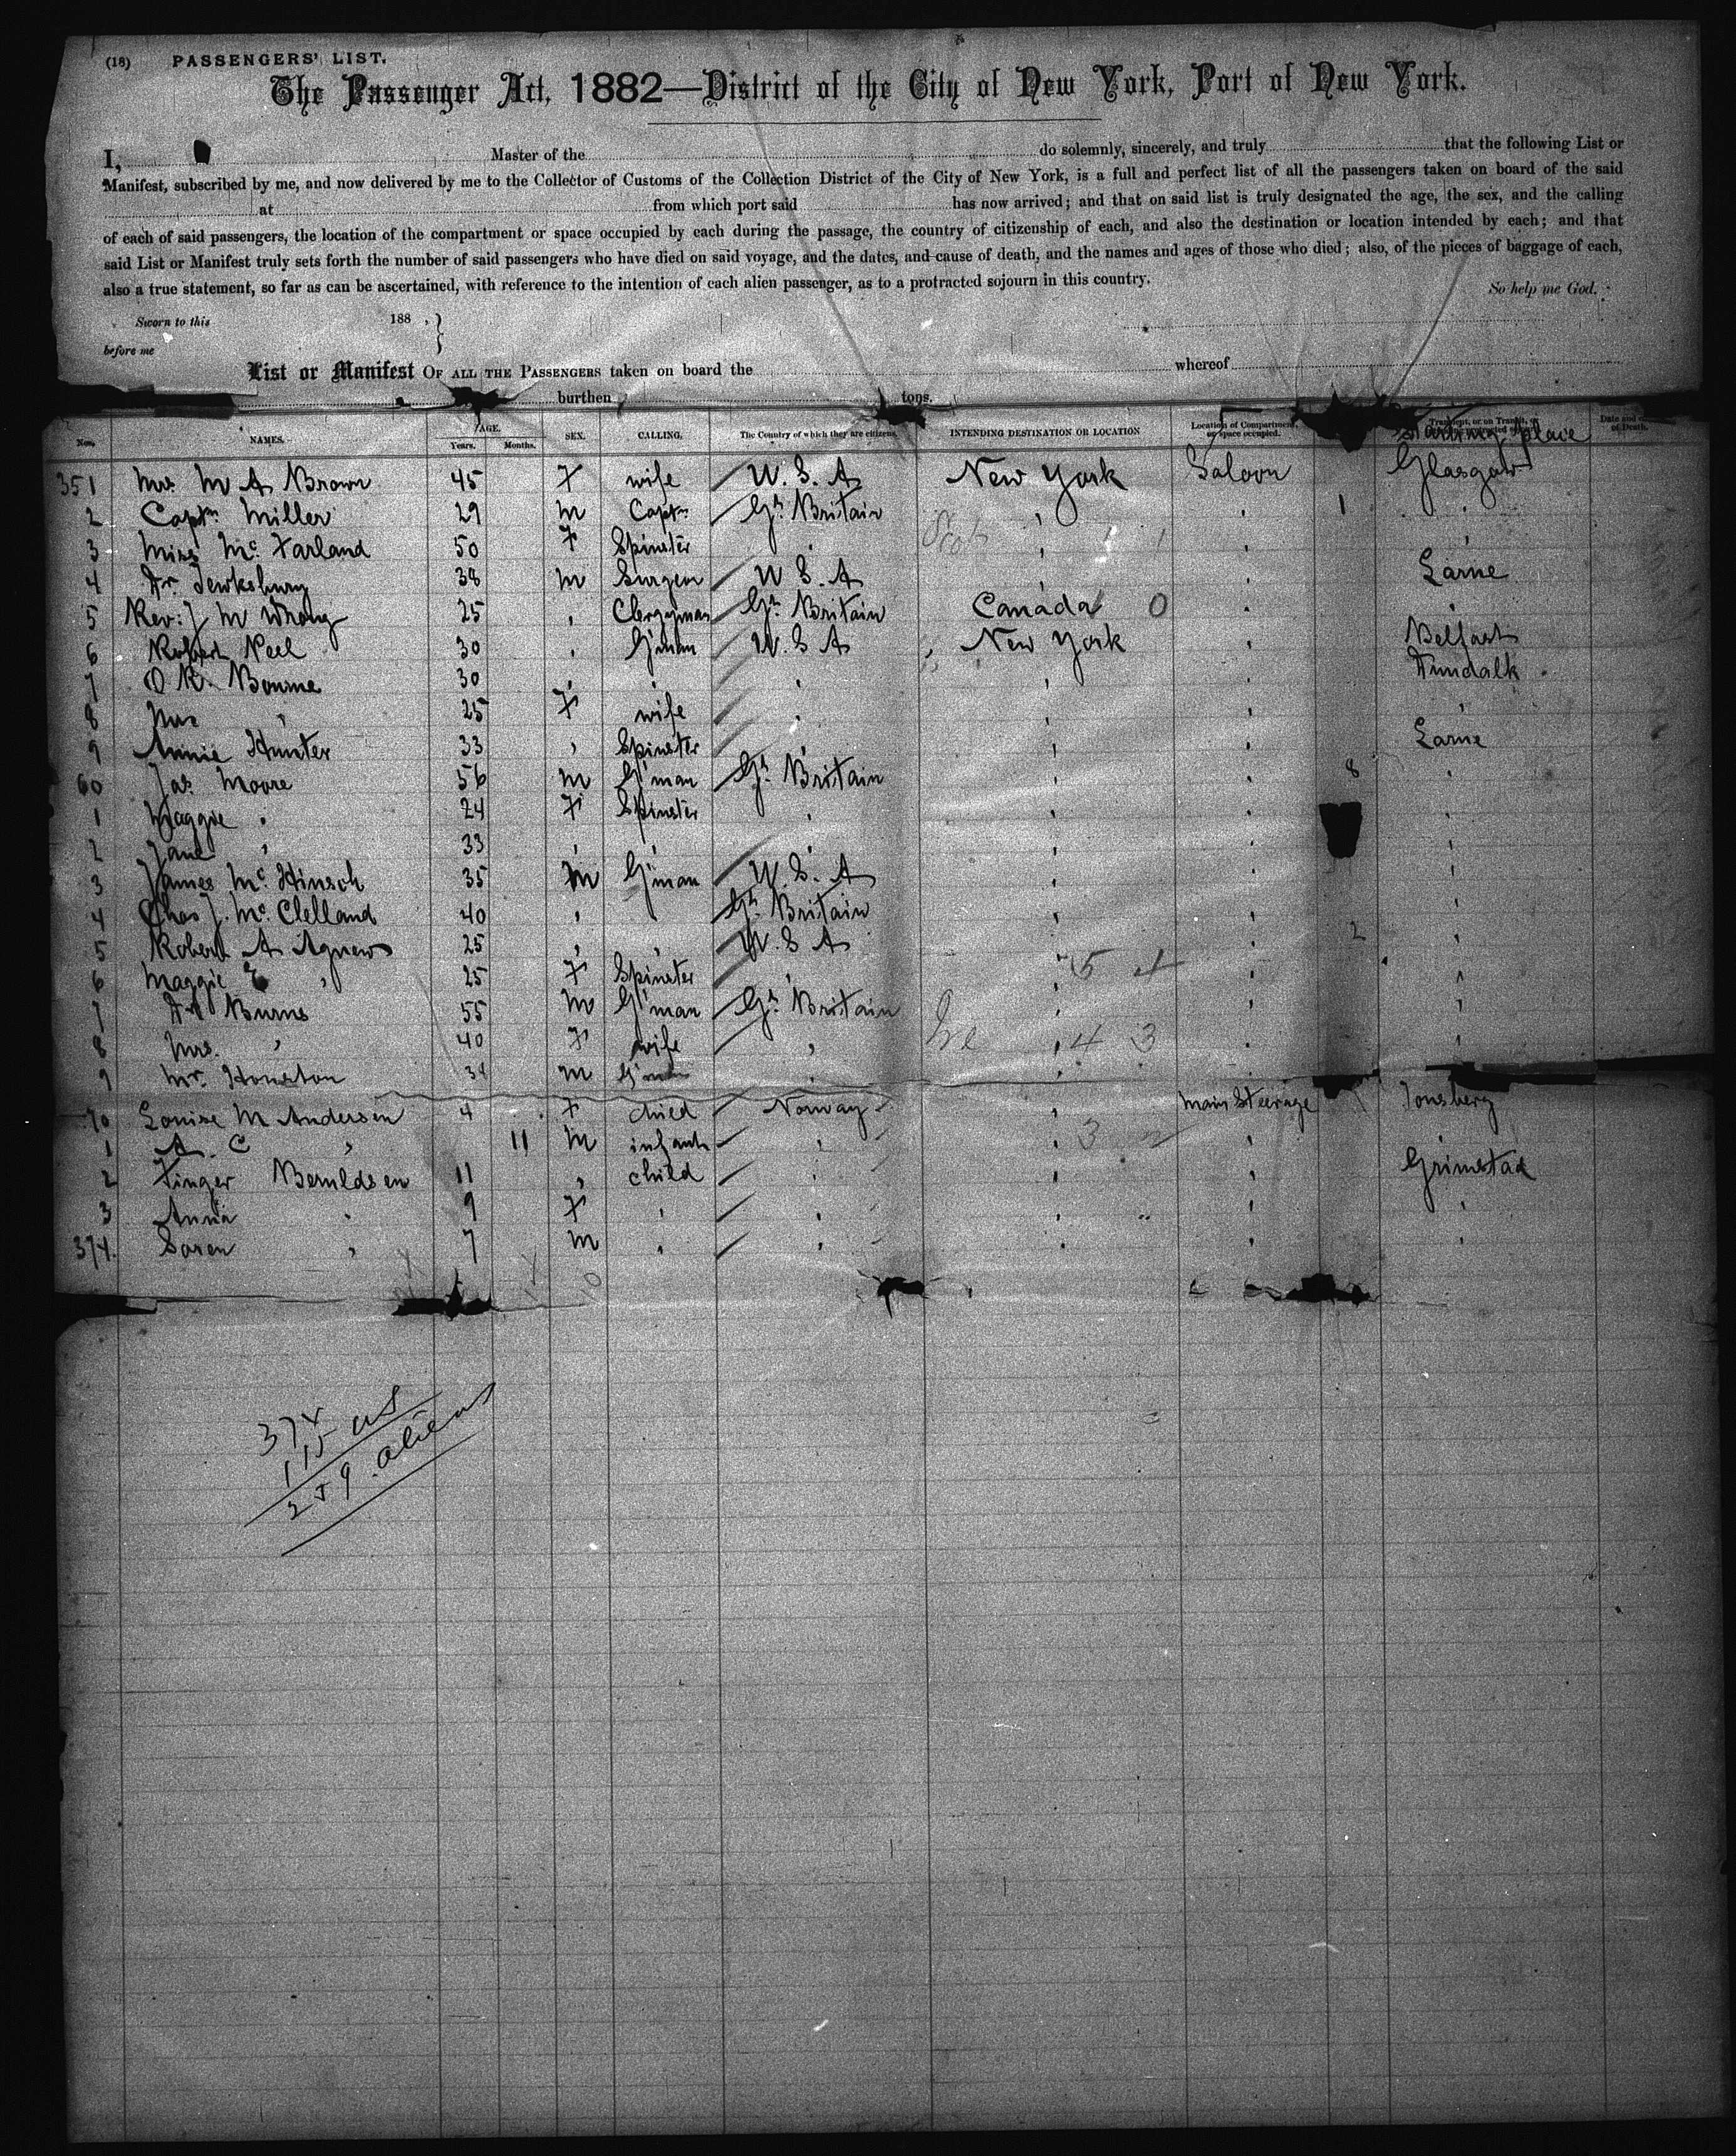 (18) PASSENGERS' LIST.
The Passenger Act, 1882—District of the City of New York, Port of New York.
I, Master of the do solemnly, sincerely, and truly that the following List or
Manifest, subscribed by me, and now delivered by me to the Collector of Customs of the Collection District of the City of New York, is a full and perfect list of all the passengers taken on board of the said
at from which port said has now arrived; and that on said list is truly designated the age, the sex, and the calling
of each of said passengers, the location of the compartment or space occupied by each during the passage, the country of citizenship of each, and also the destination or location intended by each; and that
said List or Manifest truly sets forth the number of said passengers who have died on said voyage, and the dates, and cause of death, and the names and ages of those who died; also, of the pieces of baggage of each,
also a true statement, so far as can be ascertained, with reference to the intention of each alien passenger, as to a protracted sojourn in this country. So help me God.
Sworn to this 188 , }
before me
List or Manifest OF ALL THE PASSENGERS taken on board the whereof
burthen tons.
Nos. NAMES. AGE. Years. Months. SEX. CALLING. The Country of which they are citizens. INTENDING DESTINATION OR LOCATION Location of Compartment or space occupied. Starting place Date and cause of Death.
351 Mrs. M A Brown 45 F wife U. S. A New York Saloon Glasgow
2 Captn. Miller 29 m Captn Gt. Britain " " 1 "
3 Miss Mc Farland 50 F Spinster " Scot " 1 1 " "
4 Dr. Tewksbury 38 m Surgeon U. S. A " " Larne
5 Rev: J M Wrong 25 " Clergyman Gt. Britain Canada 0 " "
6 Robert Neel 30 " G'man U. S A New York " Belfast
7 O R. Bourne 30 " " " " " Dundalk
8 Mrs " 25 F wife " " " "
9 Annie Hunter 33 " Spinster " " " Larne
60 Jas. Moore 56 m G'man Gt. Britain " " 8 "
1 Maggie " 24 F Spinster " " "
2 Jane " 33 " " " " " "
3 James Mc. Hinsch 35 m G'man U. S. A " " "
4 Chas J. Mc. Clelland 40 " Gt. Britain " " "
5 Robert A Agnew 25 " " U. S A " " 2 "
6 Maggie E " 25 F Spinster " " 5 4 " "
7 Burns 55 m G'man Gt. Britain " " "
8 Mrs. " 40 F wife " Ire " 4 3 " "
9 Mr. Houston m G'man " " "
70 Louise M Andersen 4 F child Norway " Main Steerage Tonsberg
1 A. C " 11 m infant " " 3 " "
2 Finger Bernldsen 11 " child " " " Grimstad
3 Anna " 9 F " " " " "
374. Soren " 7 m " " " " "
374
115 US
259 aliens